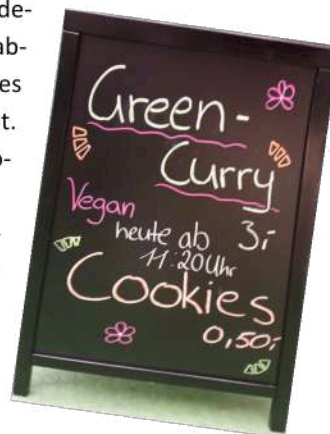 de-
ab-
es
t.
Green-
Curry
Vegan
heute ab 3,-
11:20 Uhr
Cookies
0,50,-